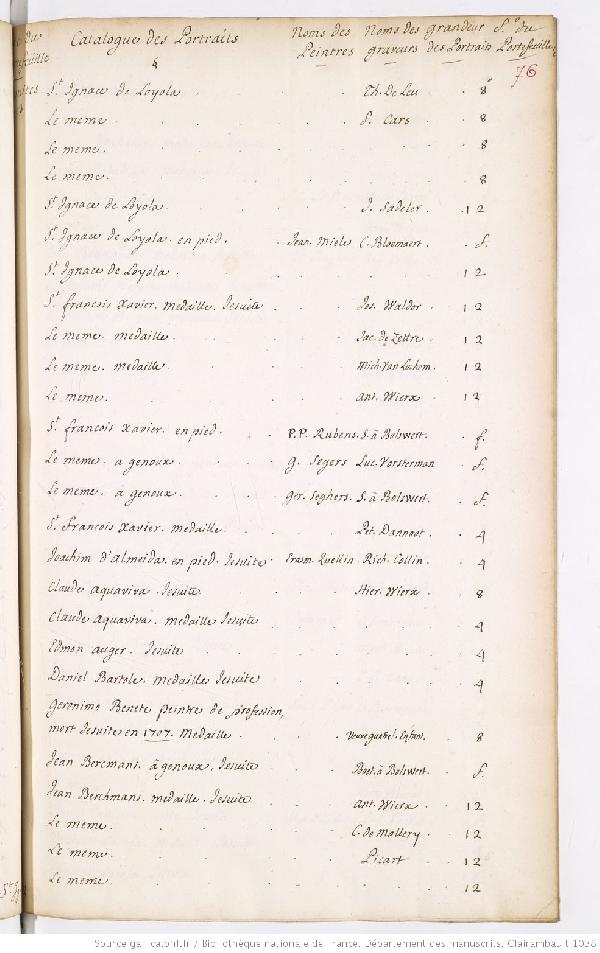 Catalogue des Portraits Noms des Noms des grandeur
Peintres graveurs des Portraits
76
St Ignace de Loyola . Th. De Leu . 8°
Le meme . . . . . f. Cars . . 8
Le meme . . . . . . . 8
Le meme . . . . . . . 8
St Ignace de Loyola . . . . J. Sadeler . . 12
St Ignace de Loyola . en pied . . Jean Miele C. Bloemaert . . f.
St Ignace de Loyola . . . . . . 12
St francois Xavier . medaille . Jesuite . . . Jos. Waldor . . 12
Le meme . medaille . . . . Jac. de Zettre . . 12
Le meme . medaille . . . . Mich. Van Lochom . 12
Le meme . . . . . ant. Wierx . . 12
St francois Xavier . en pied . . P.P. Rubens . S. à Bolswert . . f.
Le meme . a genoux . . . g. Segers Luc. Vorsterman . f.
Le meme . a genoux . . . ger. Seghers . S. à Bolswert . . f.
St francois Xavier . medaille . . . Pet. Dannoot . . 4
Joachim d'almeida . en pied . Jesuite . Erasm. Quellin . Rich. Collin . . 4
Claude aquaviva . Jesuite . . . Hier. Wierx . . 8
Claude aquaviva . medaille Jesuite . . . . 4
Edmon auger . Jesuite . . . . . 4
Daniel Bartole . medailles Jesuite . . . . 4
Geronimo Benete peintres de profession,
mort Jesuite en 1707. Medaille . . . 8
Jean Bercmans . à genoux . Jesuite . . Boet. à Bolswert . . f.
Jean Berchmans . medaille . Jesuite . . ant. Wierx . . 12
Le meme . . . . . C. de Mallery . . 12
Le meme . . . . . Picart . . 12
Le meme . . . . . . . 12
Source gallica.bnf.fr / Bibliothèque nationale de France. Département des manuscrits. Clairambault 1038